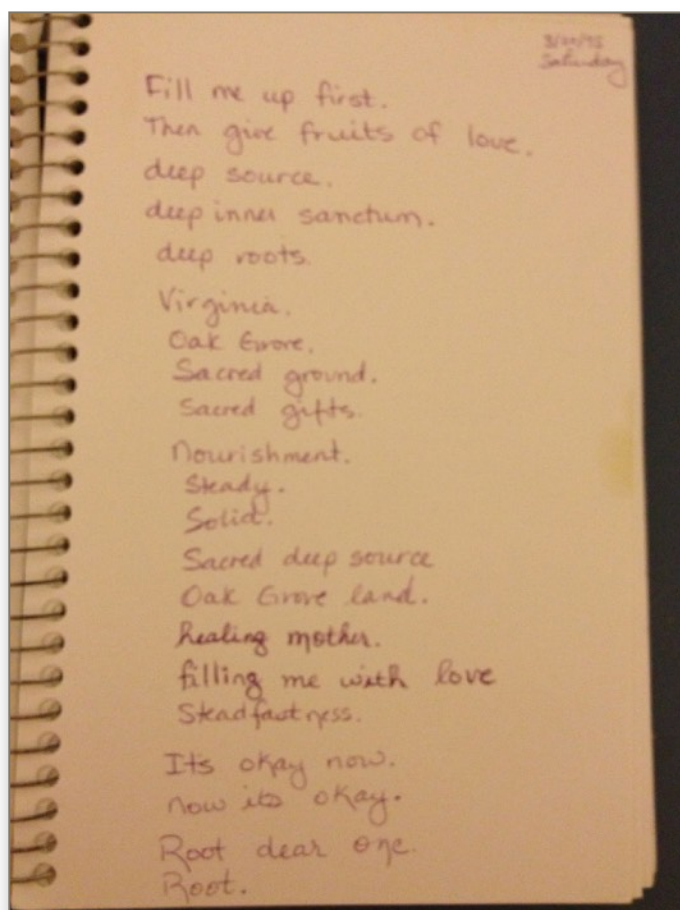 Saturday
Fill me up first.
Then give fruits of love.
deep source.
deep inner sanctum.
deep roots.
Virginia.
Oak Grove.
Sacred ground.
Sacred gifts.
Nourishment.
Steady.
Solid.
Sacred deep source
Oak Grove land.
healing mother.
filling me with love
Steadfastness.
It's okay now.
now its okay.
Root dear one.
Root.